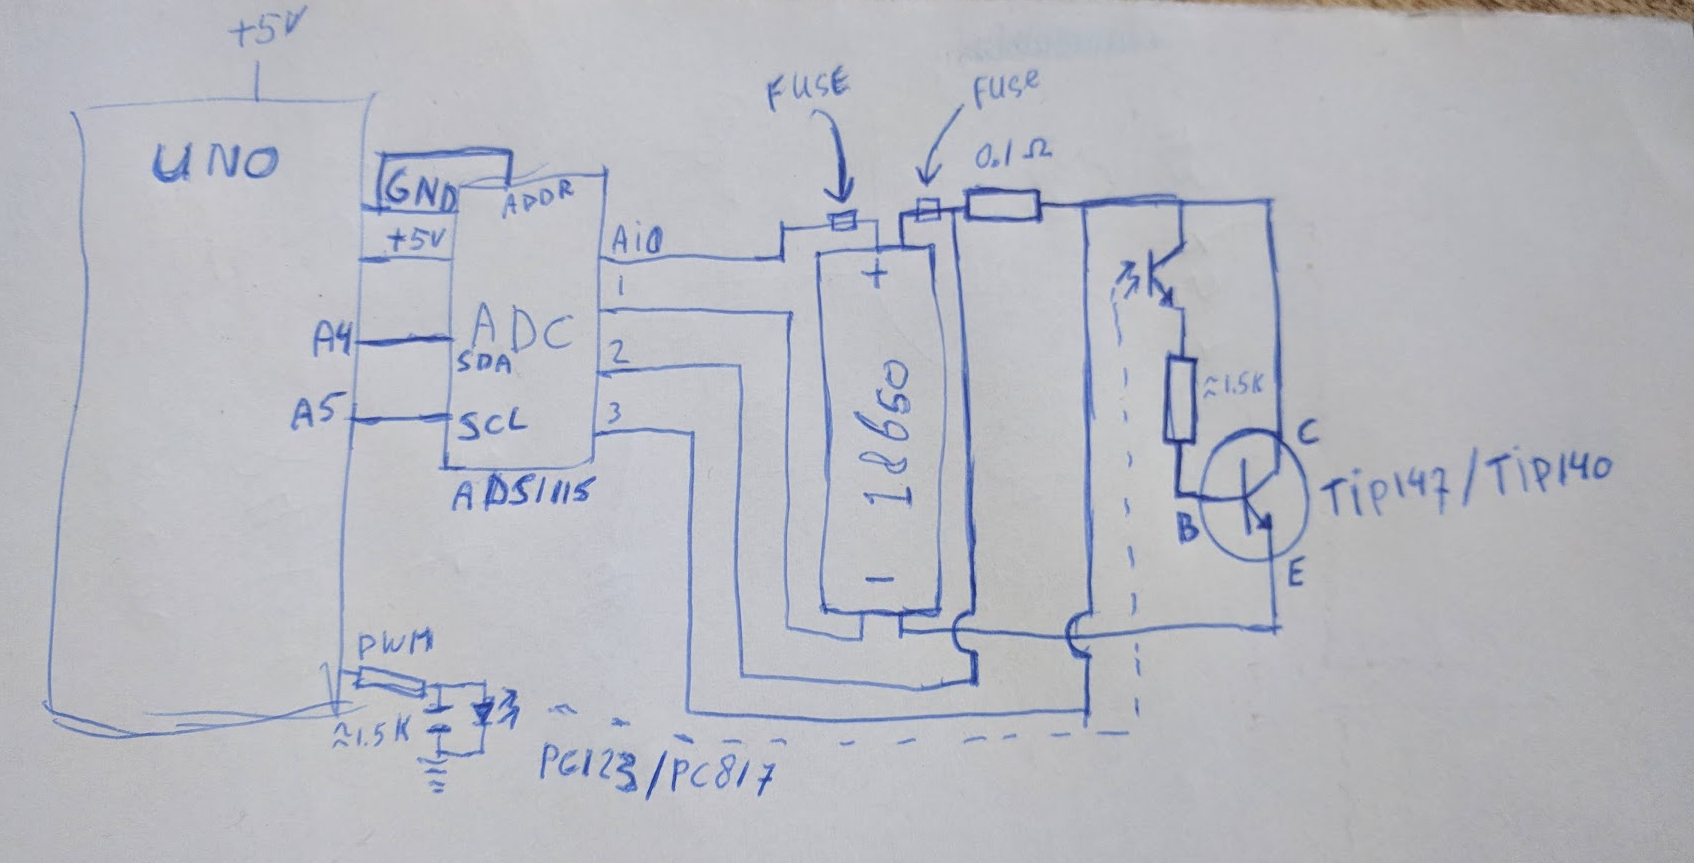 +5V
UNO
GND
ADDR
+5V
A4
SDA
A5
SCL
ADC
ADS1115
Ai0
1
2
3
FUSE
FUSE
0.1Ω
+
18650
-
≈1.5K
C
B
E
TiP147/TiP140
PWM
≈1.5K
PC123/PC817